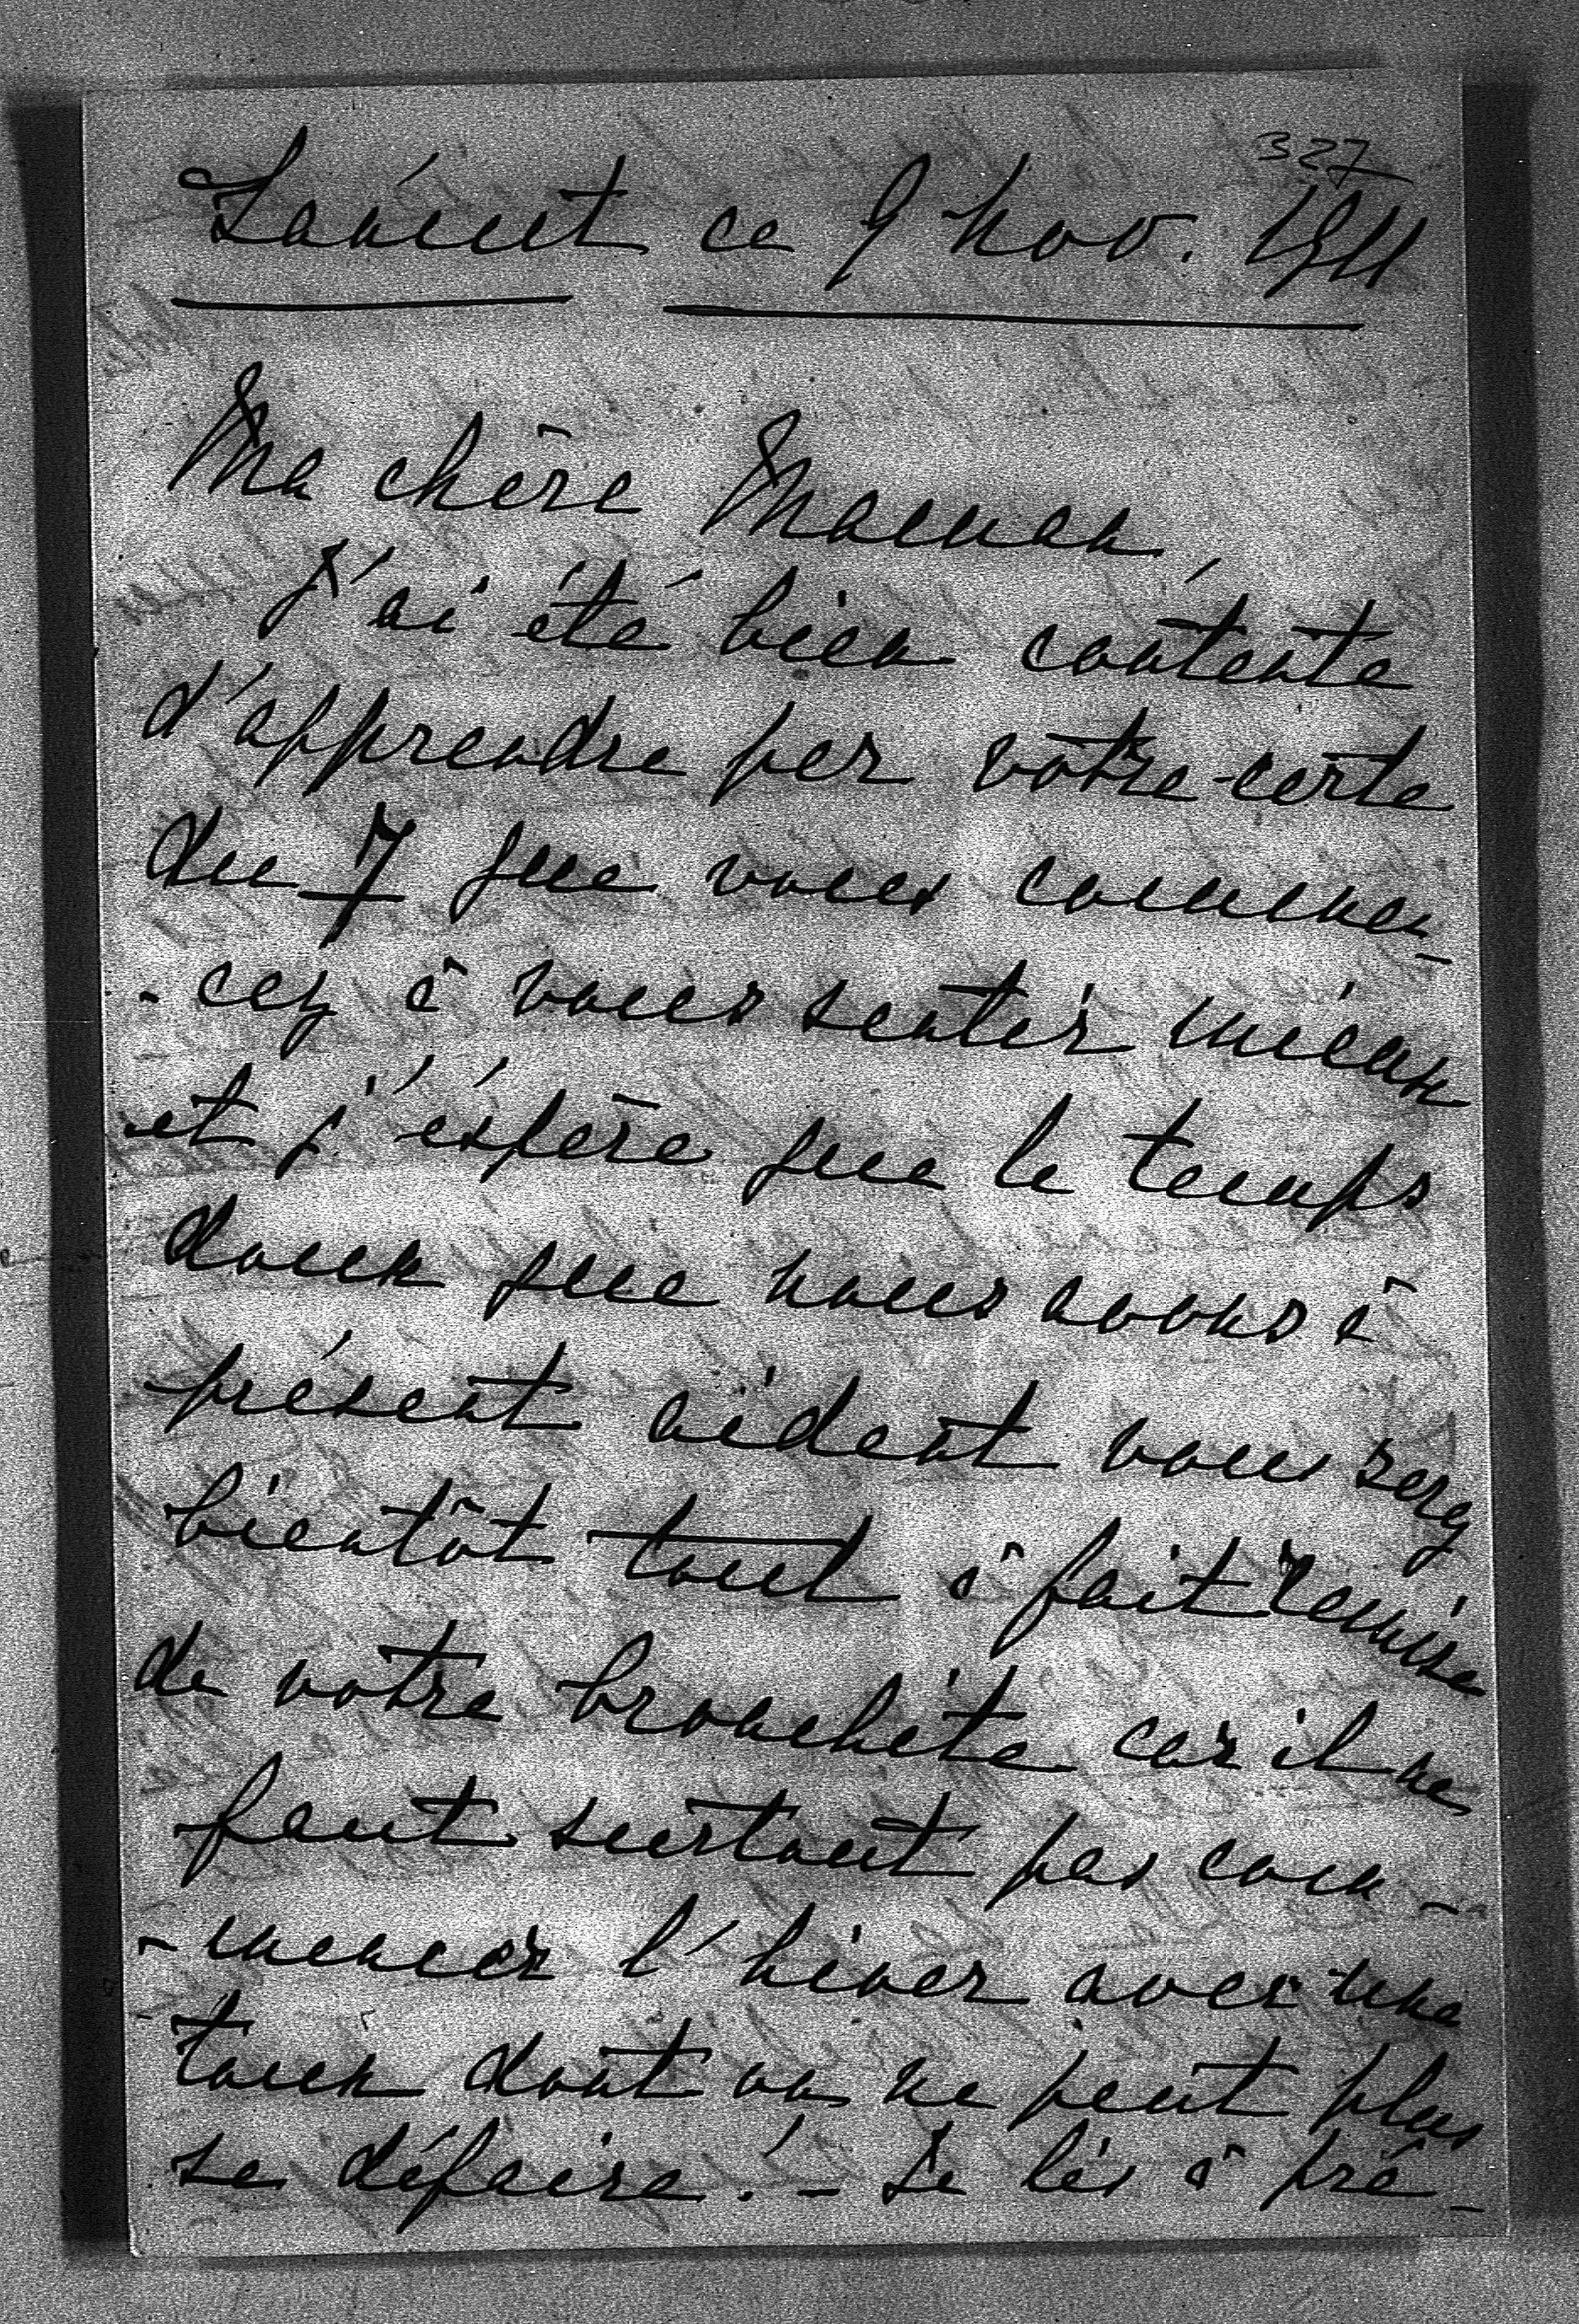 327
Lanéut ce 9 Nov. 1911
Ma chère Maman,
J'ai été bien contente
d'apprendre par votre carte
du 7 que vous commen-
-cez à vous sentir mieux
et j'éspère que le temps
doux que nous avons à
présent aidant vous serez
bientôt tout à fait remise
de votre bronchite car il ne
faut surtout pas com-
-mencer l'hiver avec une
toux dont on ne peut plus
se défaire! - Je lis à pré-